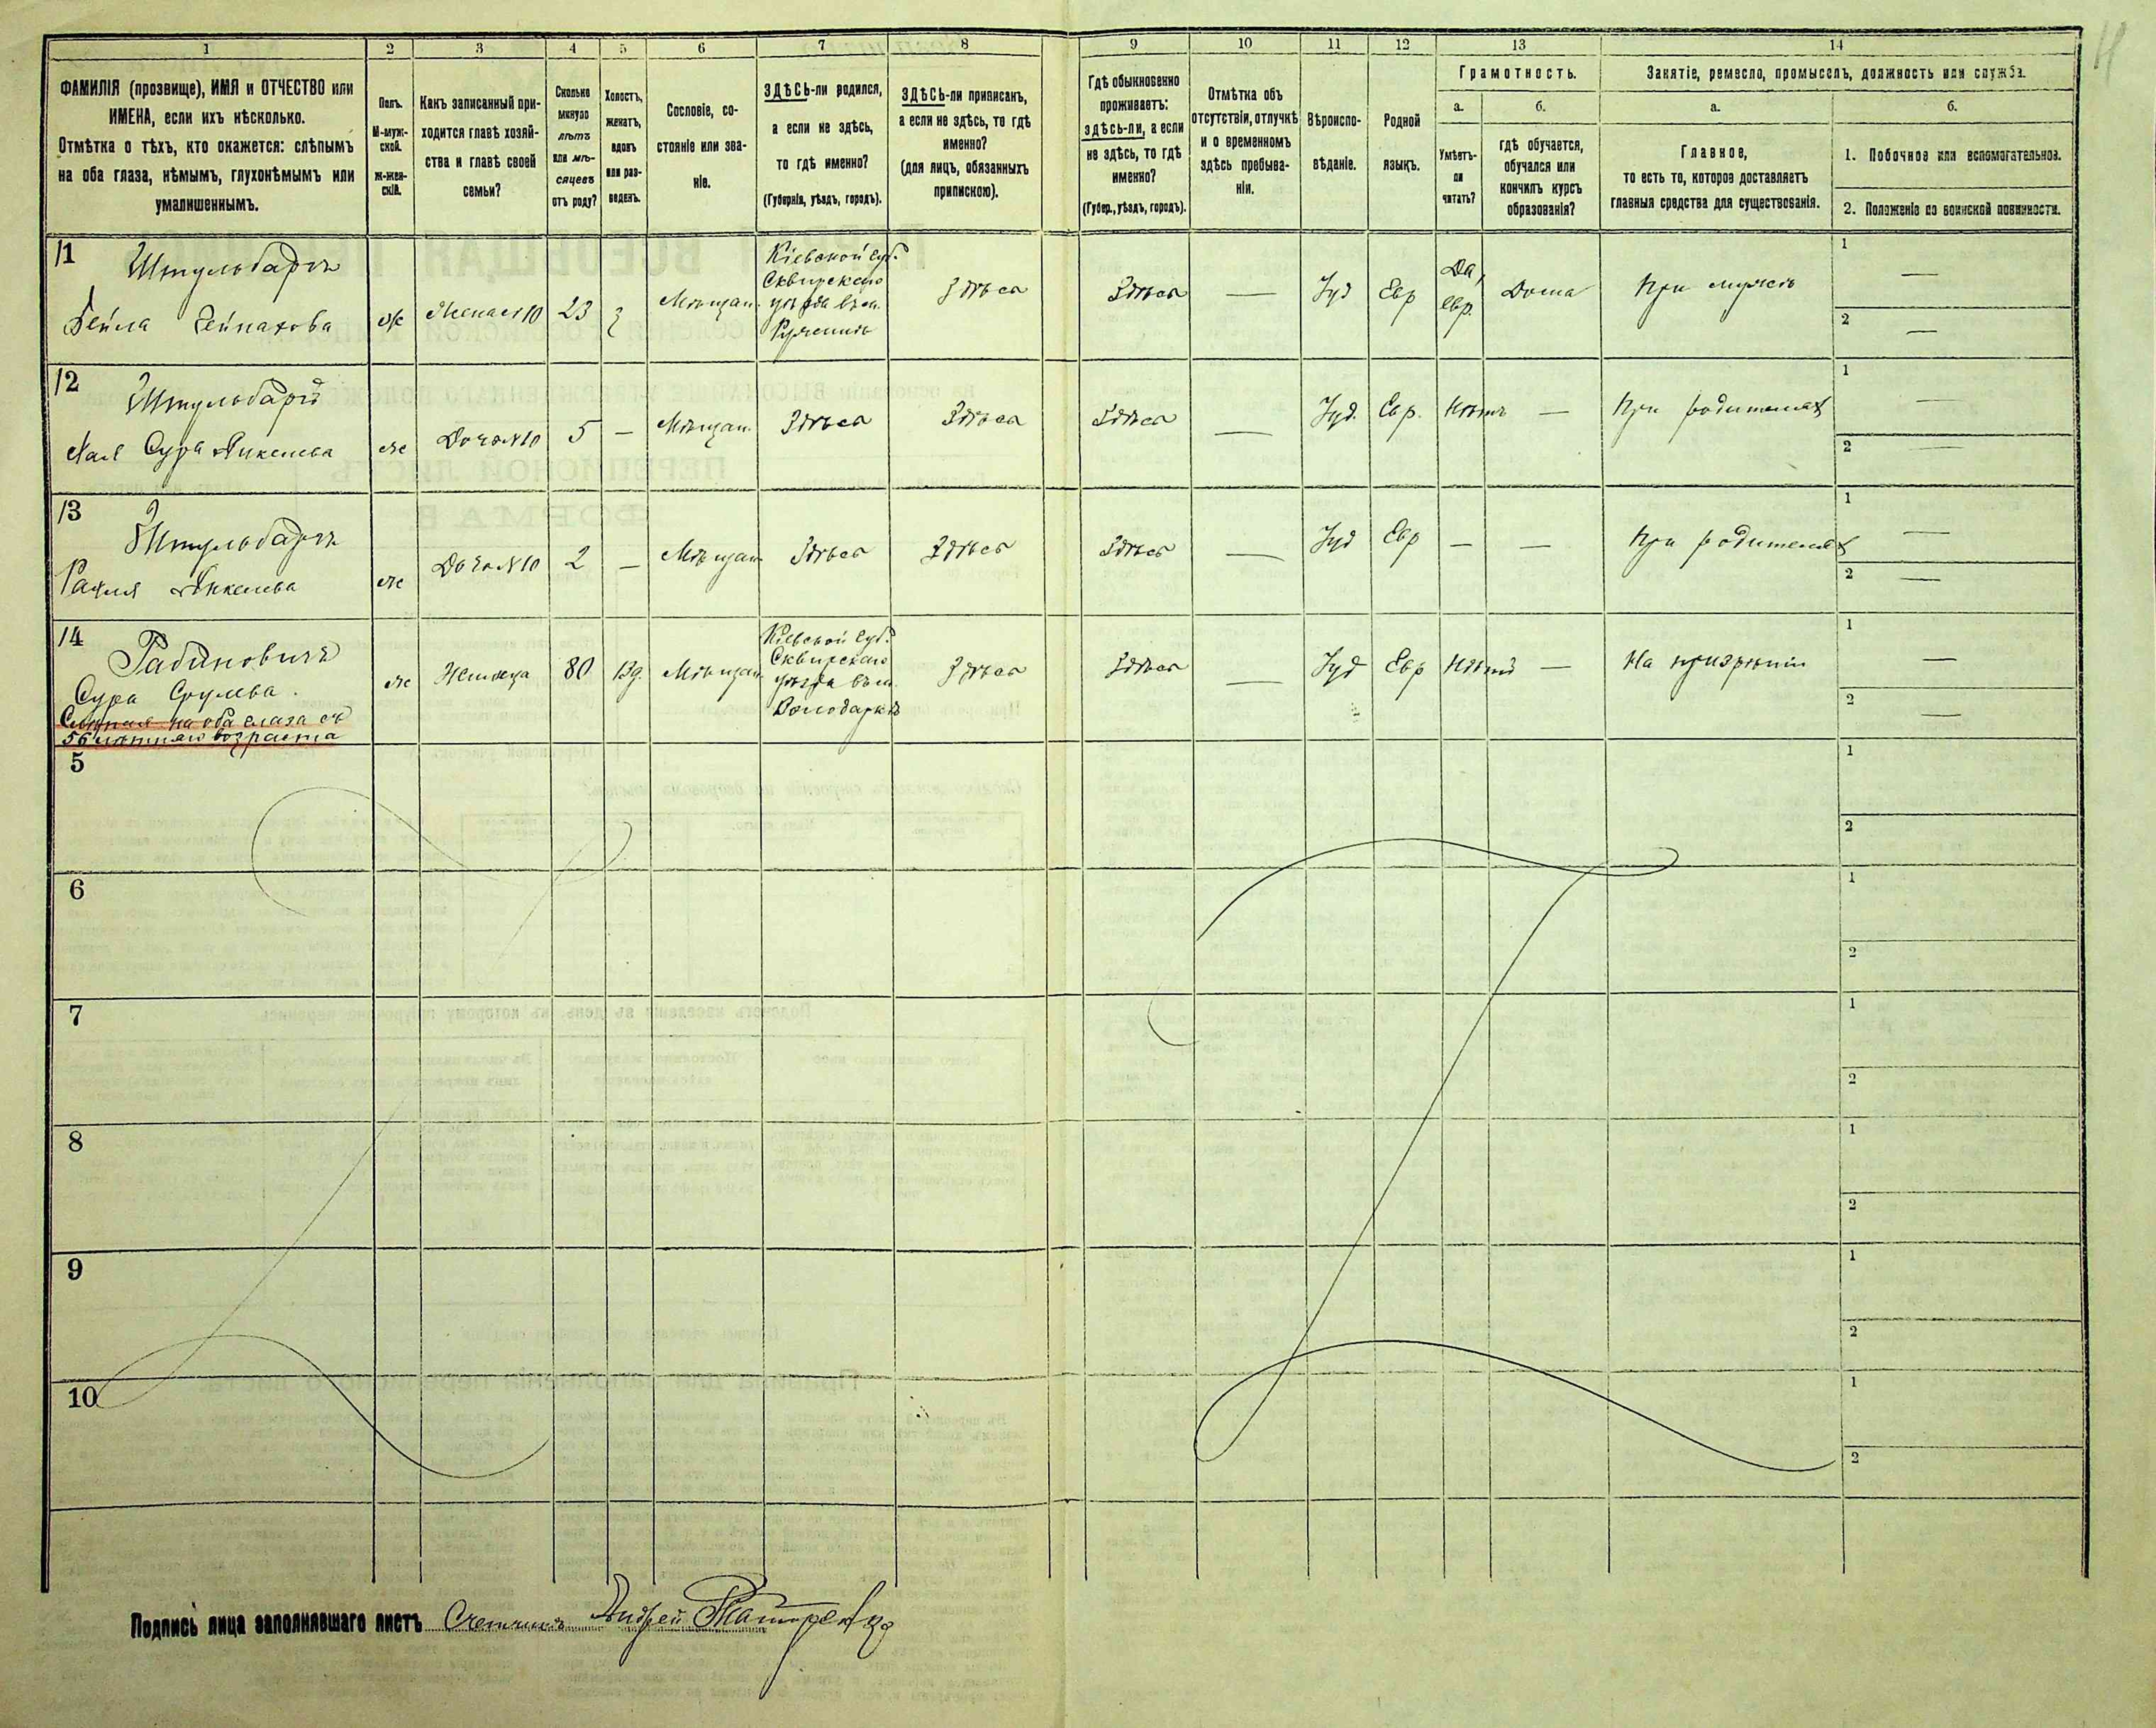 1
2
3
4
5
6
7
8
9
10
11
12
13
14
ФАМИЛІЯ (прозвище), ИМЯ и ОТЧЕСТВО или
ИМЕНА, если ихъ нѣсколько.
Отмѣтка о тѣхъ, кто окажется: слѣпымъ
на оба глаза, нѣмымъ, глухонѣмымъ или
умалишеннымъ.
Полъ.
М-муж-
ской.
Ж-жен-
скій.
Какъ записанный при-
ходится главѣ хозяй-
ства и главѣ своей
семьи?
Сколько
минуло
лѣтъ
или мѣ-
сяцевъ
отъ роду?
Холостъ,
женатъ,
вдовъ
или раз-
веденъ.
Сословіе, со-
стояніе или зва-
ніе.
ЗДѢСЬ-ли родился,
а если не здѣсь,
то гдѣ именно?
(Губернія, уѣздъ, городъ).
ЗДѢСЬ-ли приписанъ,
а если не здѣсь, то гдѣ
именно?
(для лицъ, обязанныхъ
припискою).
Гдѣ обыкновенно
проживаетъ:
здѣсь-ли, а если
не здѣсь, то гдѣ
именно?
(Губер., уѣздъ, городъ).
Отмѣтка объ
отсутствіи, отлучкѣ
и о временномъ
здѣсь пребыва-
ніи.
Вѣроиспо-
вѣданіе.
Родной
языкъ.
Грамотность.
а.
б.
Умѣетъ-
ли
читать?
гдѣ обучается,
обучался или
кончилъ курсъ
образованія?
Занятіе, ремесло, промыселъ, должность или служба.
а.
б.
Главное,
то есть то, которое доставляетъ
главныя средства для существованія.
1. Побочное или вспомогательное.
2. Положеніе по воинской повинности.
11
Штульбарг
Бейла Чейнахова
ж
Жена №10
23
з
Мѣщан.
Кіевской губ.
Сквирскаго
уѣзда въ м.
Здѣсь
Здѣсь
—
Іуд
Евр
Да,
евр.
Дома
При мужѣ
1 —
2 —
12
Штульбарг
Хая Сура Янкелева
ж
Дочь №10
5
—
Мѣщан.
Здѣсь
Здѣсь
Здѣсь
—
Іуд.
Евр.
Нѣтъ
—
При родителях
1 —
2 —
13
Штульбарг
Рахля Янкелева
ж
Дочь №10
2
—
Мѣщан.
Здѣсь
Здѣсь
Здѣсь
—
Іуд
Евр
—
—
При родителях
1 —
2 —
14
Рабиновичъ
Сура Срулева.
Слѣпая на оба глаза съ
56 лѣтняго возраста
ж
80
Вд.
Мѣщан.
Кіевской губ.
Сквирскаго
уѣзда въ м.
Володаркѣ
Здѣсь
Здѣсь
—
Іуд
Евр
Нѣтъ
—
На призрѣніи
1 —
2 —
5
1
2
6
1
2
7
1
2
8
1
2
9
1
2
10
1
2
Подпись лица заполнявшаго листъ Счетчикъ Андрей